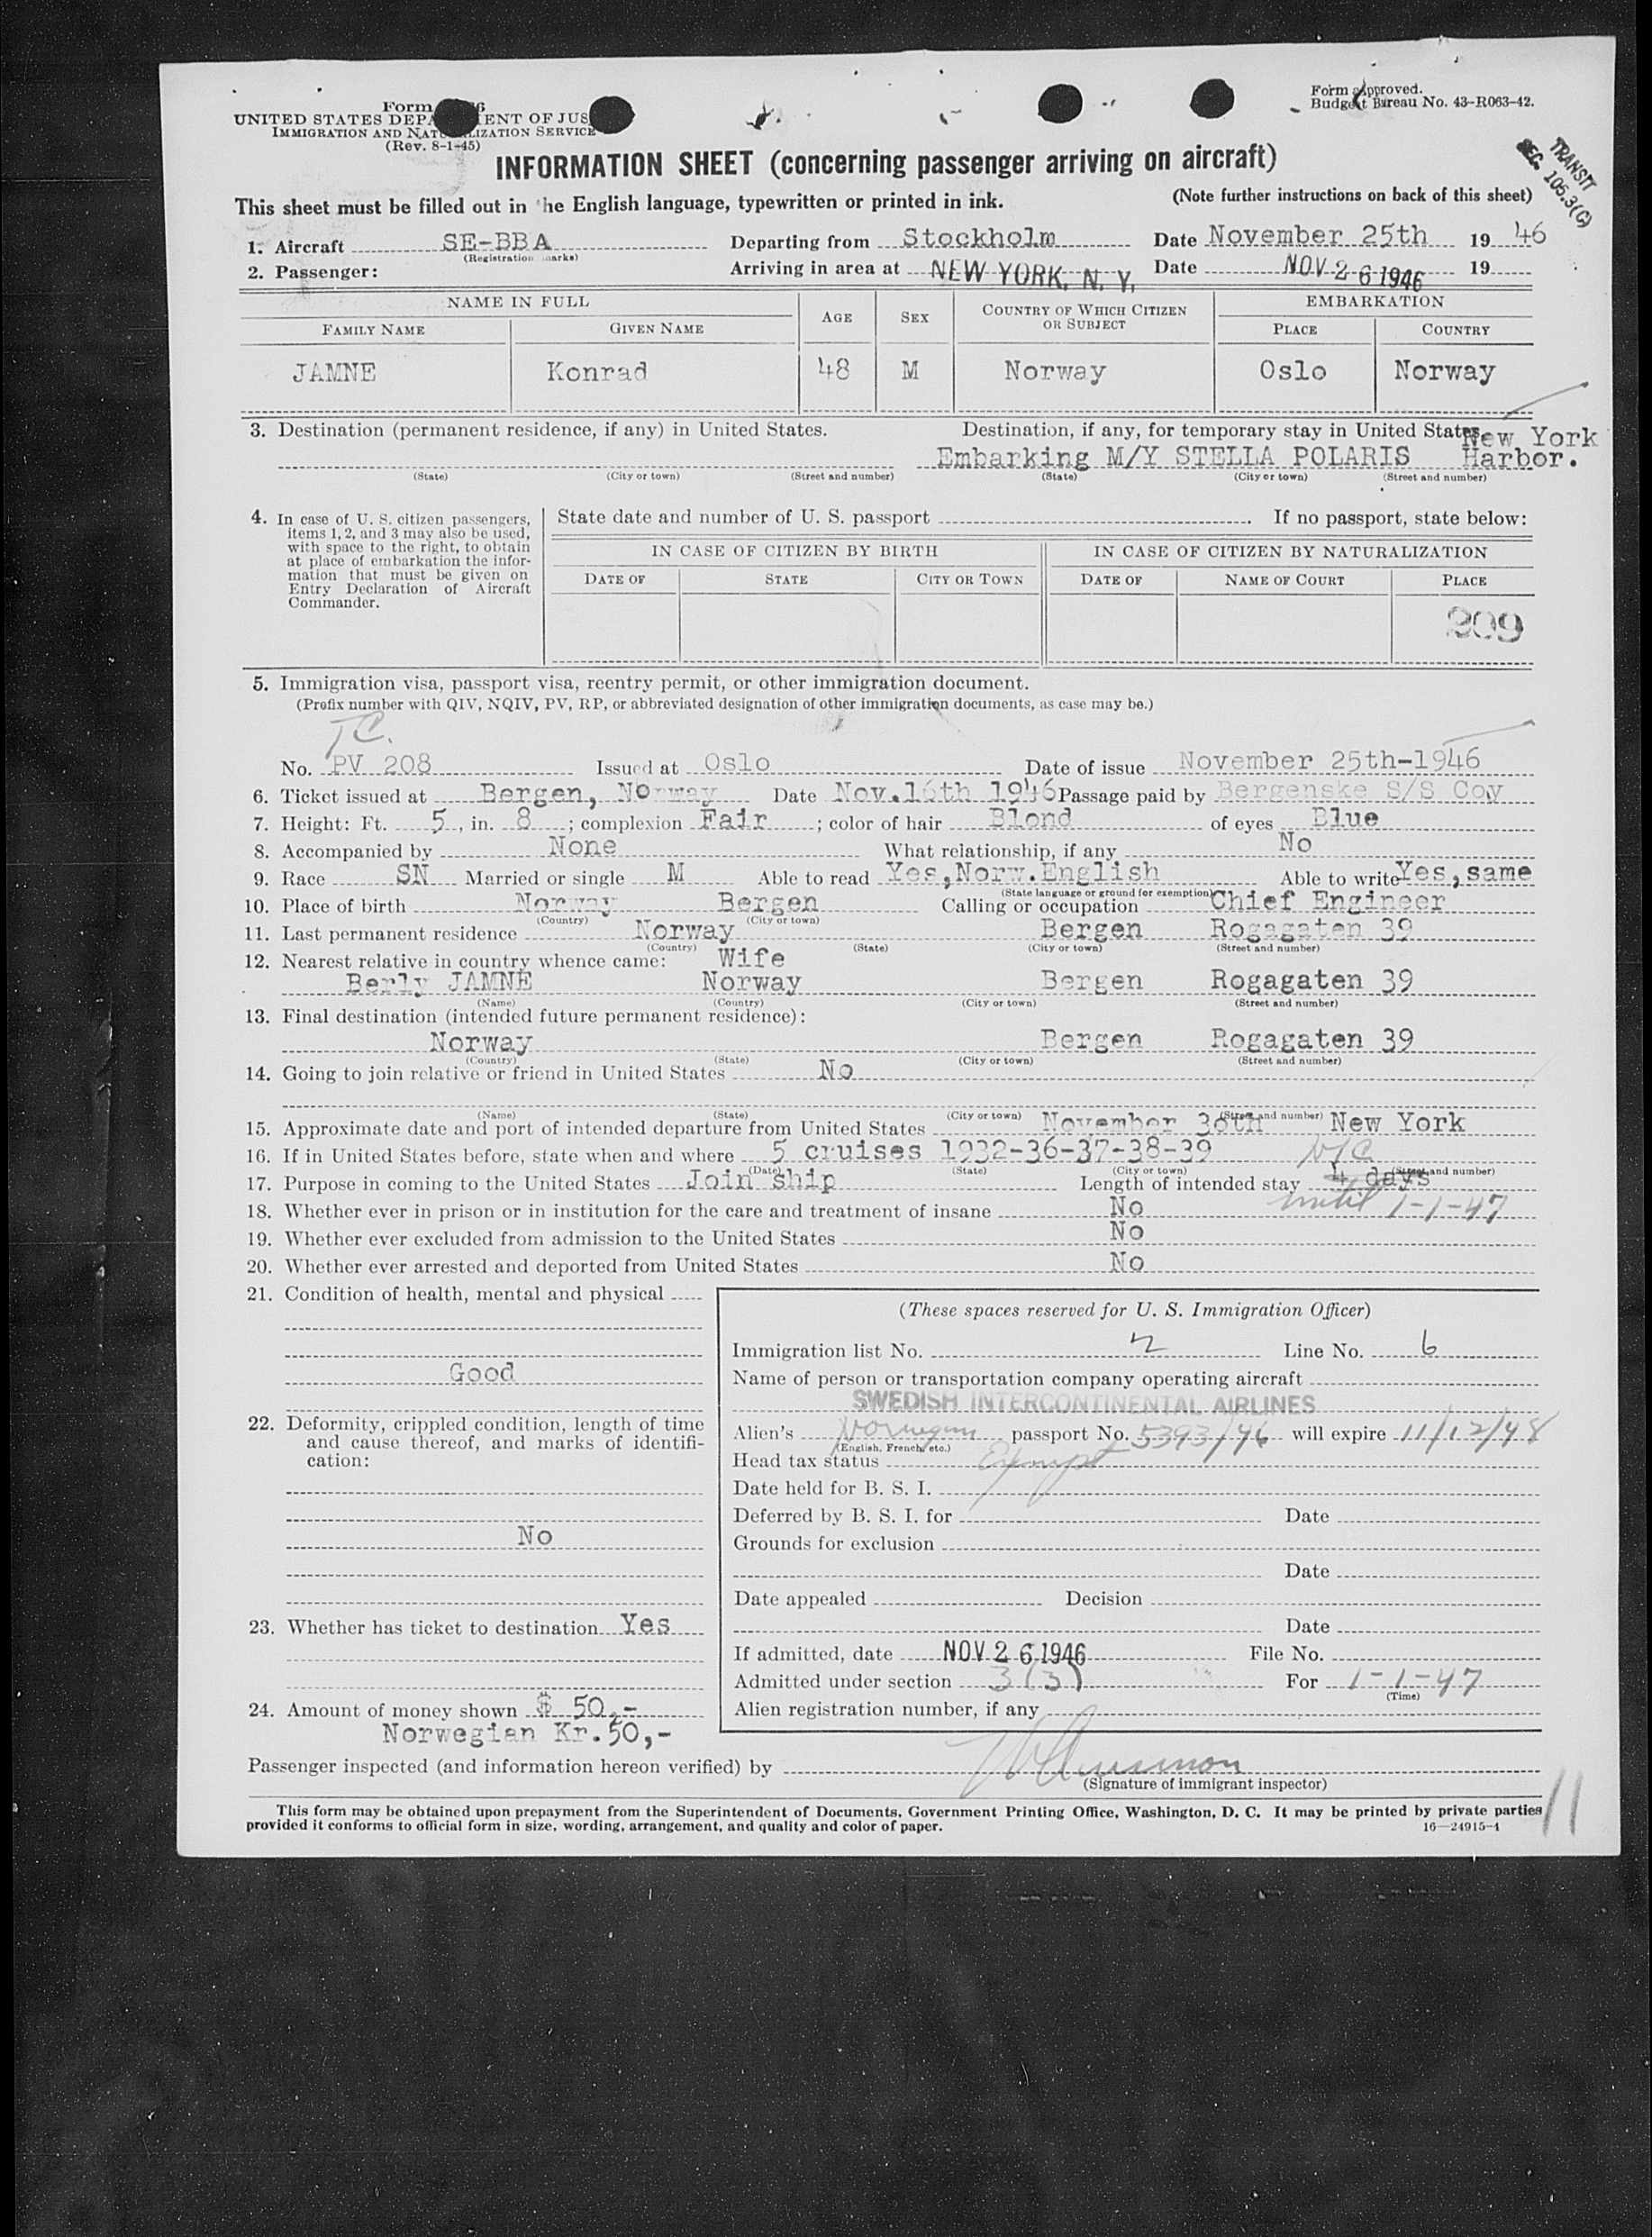 Form
UNITED STATES DEPA ENT OF JUS
IMMIGRATION AND NATU LIZATION SERVICE
(Rev. 8-1-45)
Form Approved.
Budget Bureau No. 43-R063-42.
TRANSIT
SEC. 105.3(G)
INFORMATION SHEET (concerning passenger arriving on aircraft)
This sheet must be filled out in the English language, typewritten or printed in ink. (Note further instructions on back of this sheet)
1. Aircraft SE-BBA Departing from Stockholm Date November 25th 19 46
(Registration marks)
2. Passenger: Arriving in area at NEW YORK, N. Y. Date NOV 26 1946 19
NAME IN FULL AGE SEX COUNTRY OF WHICH CITIZEN OR SUBJECT EMBARKATION
FAMILY NAME GIVEN NAME PLACE COUNTRY
JAMNE Konrad 48 M Norway Oslo Norway
3. Destination (permanent residence, if any) in United States. Destination, if any, for temporary stay in United States.
New York
Embarking M/Y STELLA POLARIS Harbor.
(State) (City or town) (Street and number) (State) (City or town) (Street and number)
4. In case of U. S. citizen passengers, items 1, 2, and 3 may also be used, with space to the right, to obtain at place of embarkation the information that must be given on Entry Declaration of Aircraft Commander.
State date and number of U. S. passport If no passport, state below:
IN CASE OF CITIZEN BY BIRTH IN CASE OF CITIZEN BY NATURALIZATION
DATE OF STATE CITY OR TOWN DATE OF NAME OF COURT PLACE
209
5. Immigration visa, passport visa, reentry permit, or other immigration document.
(Prefix number with QIV, NQIV, PV, RP, or abbreviated designation of other immigration documents, as case may be.)
TC.
No. PV 208 Issued at Oslo Date of issue November 25th-1946
6. Ticket issued at Bergen, Norway Date Nov.16th 1946 Passage paid by Bergenske S/S Coy
7. Height: Ft. 5, in. 8; complexion Fair; color of hair Blond of eyes Blue
8. Accompanied by None What relationship, if any No
9. Race SN Married or single M Able to read Yes,Norw.English Able to write Yes, same
(State language or ground for exemption)
10. Place of birth Norway Bergen Calling or occupation Chief Engineer
(Country) (City or town)
11. Last permanent residence Norway Bergen Rogagaten 39
(Country) (State) (City or town) (Street and number)
12. Nearest relative in country whence came: Wife
Berly JAMNE Norway Bergen Rogagaten 39
(Name) (Country) (City or town) (Street and number)
13. Final destination (intended future permanent residence):
Norway Bergen Rogagaten 39
(Country) (State) (City or town) (Street and number)
14. Going to join relative or friend in United States No
(Name) (State) (City or town) (Street and number)
15. Approximate date and port of intended departure from United States November 30th New York
16. If in United States before, state when and where 5 cruises 1932-36-37-38-39
(Date) (State) (City or town) (Street and number)
17. Purpose in coming to the United States Join ship Length of intended stay 4 days
until 1-1-47
18. Whether ever in prison or in institution for the care and treatment of insane No
19. Whether ever excluded from admission to the United States No
20. Whether ever arrested and deported from United States No
21. Condition of health, mental and physical
Good
22. Deformity, crippled condition, length of time and cause thereof, and marks of identification:
No
23. Whether has ticket to destination Yes
24. Amount of money shown $ 50,-
Norwegian Kr.50,-
(These spaces reserved for U. S. Immigration Officer)
Immigration list No. 2 Line No. 6
Name of person or transportation company operating aircraft
SWEDISH INTERCONTINENTAL AIRLINES
Alien's Norwegian passport No. 5393/46 will expire 11/12/48
(English, French, etc.)
Head tax status Exempt
Date held for B. S. I.
Deferred by B. S. I. for Date
Grounds for exclusion
Date
Date appealed Decision
Date
If admitted, date NOV 26 1946 File No.
Admitted under section 3(3) For 1-1-47
(Time)
Alien registration number, if any
Passenger inspected (and information hereon verified) by
(Signature of immigrant inspector)
This form may be obtained upon prepayment from the Superintendent of Documents, Government Printing Office, Washington, D. C. It may be printed by private parties
provided it conforms to official form in size, wording, arrangement, and quality and color of paper. 16—24915-1
11